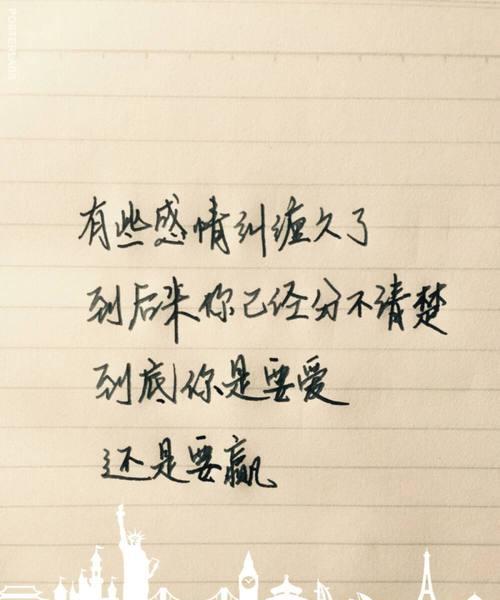 POSTERLABS
有些感情纠缠久了
到后来你已经分不清楚
到底你是要爱
还是要赢